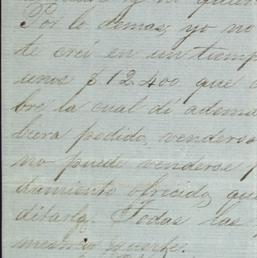 Por lo demas, yo no
te creí en un tiemp
unos $12.400 qué
bre la cual dí adema
biera pedido, venderse
no puede venderse
damiento ofrecido, que
ditarla. Todas las
mesmo